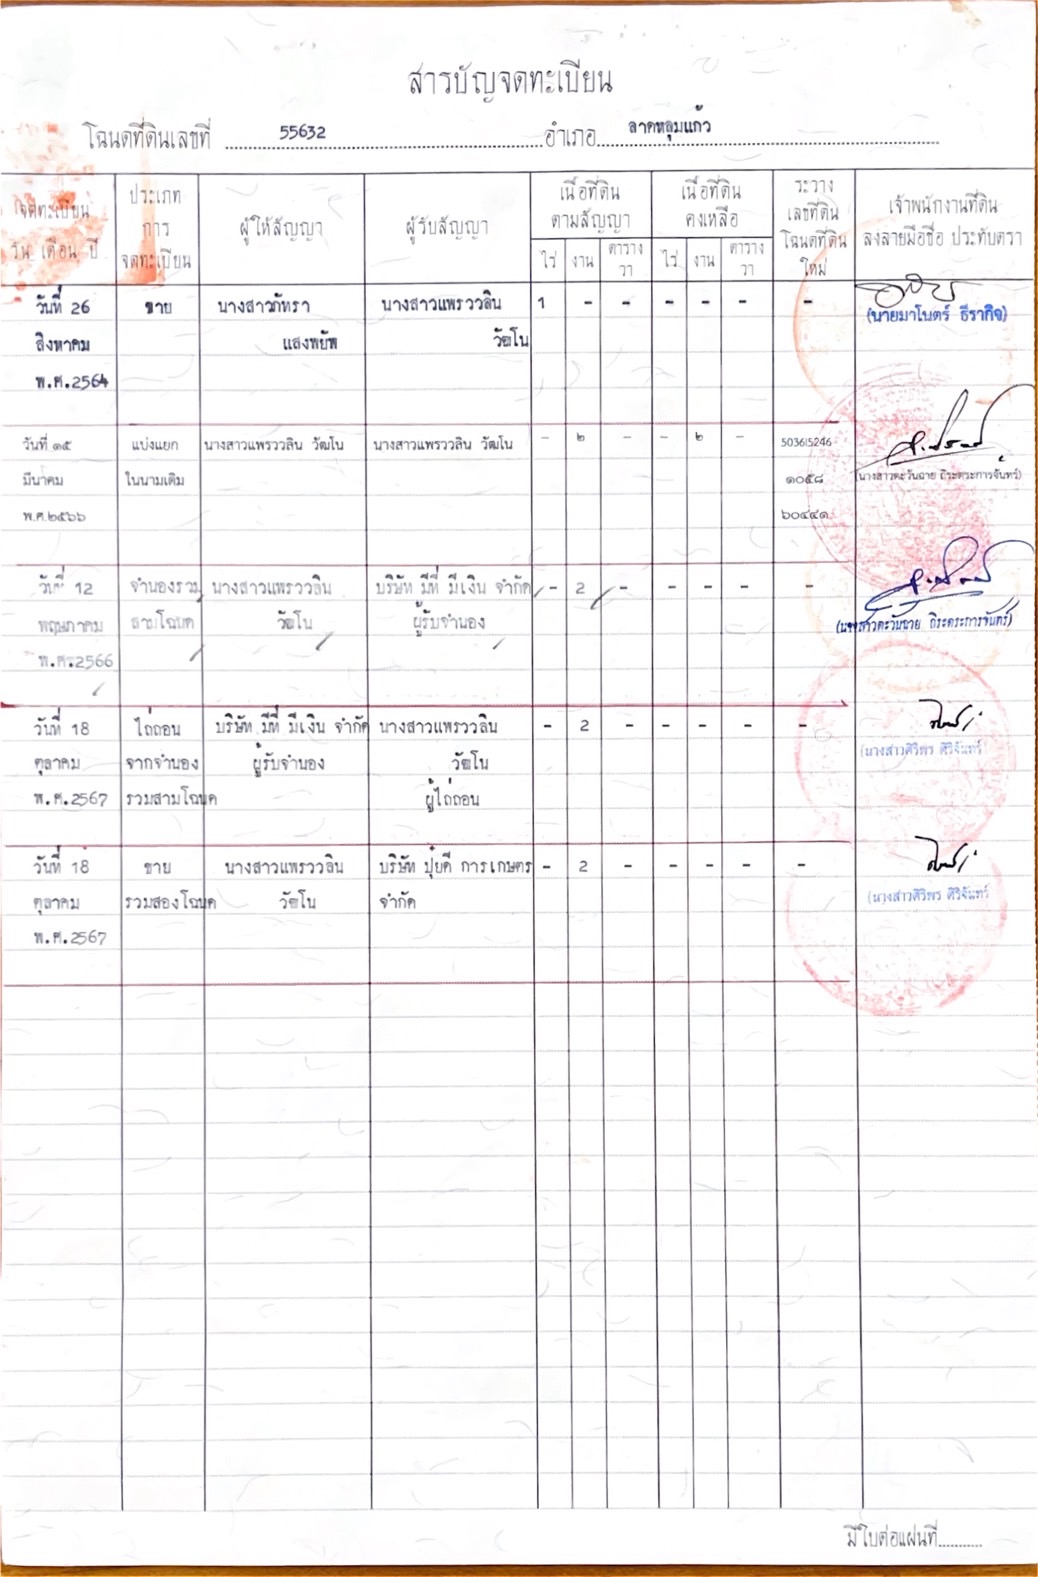 สารบัญจดทะเบียน
โฉนดที่ดินเลขที่ 55632 อำเภอ ลาดหลุมแก้ว
จดทะเบียน วัน เดือน ปี
ประเภทการจดทะเบียน
ผู้ให้สัญญา
ผู้รับสัญญา
เนื้อที่ดินตามสัญญา
เนื้อที่ดินคงเหลือ
ระวาง เลขที่ดิน โฉนดที่ดินใหม่
เจ้าพนักงานที่ดิน ลงลายมือชื่อ ประทับตรา
ไร่ งาน ตารางวา ไร่ งาน ตารางวา
วันที่ 26 ขาย นางสาวภัทรา นางสาวแพรววลิน 1 - - - - - -
(นายมาโนตร์ ธีรากิจ)
สิงหาคม แสงพยัพ วัฒโน
พ.ศ.2564
วันที่ ๑๕ แบ่งแยก นางสาวแพรววลิน วัฒโน นางสาวแพรววลิน วัฒโน - ๒ - - ๒ - 5036I5246
มีนาคม ในนามเดิม ๑๐๕๘ (นางสาวตะวันฉาย ถิระตระการจันทร์)
พ.ศ.๒๕๖๖ ๖๐๔๔๑
วันที่ 12 จำนองรวม นางสาวแพรววลิน บริษัท มีที่ มีเงิน จำกัด - 2 - - - - -
พฤษภาคม สามโฉนด วัฒโน ผู้รับจำนอง (นางสาวตะวันฉาย ถิระตระการจันทร์)
พ.ศ.2566
วันที่ 18 ไถ่ถอน บริษัท มีที่ มีเงิน จำกัด นางสาวแพรววลิน - 2 - - - - -
ตุลาคม จากจำนอง ผู้รับจำนอง วัฒโน (นางสาวศิริพร ศิริจันทร์)
พ.ศ.2567 รวมสามโฉนด ผู้ไถ่ถอน
วันที่ 18 ขาย นางสาวแพรววลิน บริษัท ปุ๋ยดี การเกษตร - 2 - - - - -
ตุลาคม รวมสองโฉนด วัฒโน จำกัด (นางสาวศิริพร ศิริจันทร์)
พ.ศ.2567
มีใบต่อแผ่นที่..........